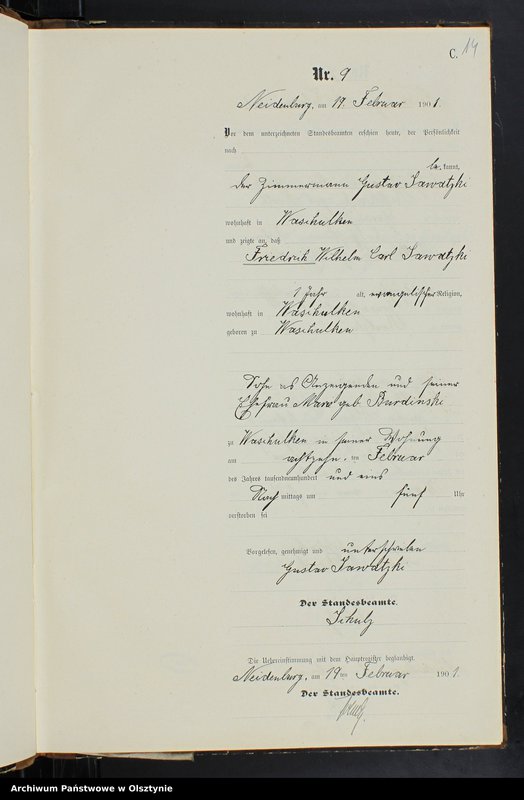 C. 14
Nr. 9
Neidenburg, am 19. Februar 1901.
Vor dem unterzeichneten Standesbeamten erschien heute, der Persönlichkeit
nach
be kannt,
der Zimmermann Gustav Sawatzki
wohnhaft in Waschulken
und zeigte an, daß
Friedrich Wilhelm Carl Sawatzki
1 Jahr alt, evangelischer Religion,
wohnhaft in Waschulken
geboren zu Waschulken
Sohn des Anzeigenden und seiner
Ehefrau geb Burdinski
zu Waschulken in seiner Wohnung
am achtzehn ten Februar
des Jahres tausendneunhundert und eins
Nach mittags um fünf Uhr
verstorben sei
Vorgelesen, genehmigt und unterschrieben
Gustav Sawatzki
Der Standesbeamte.
Schulz
Die Uebereinstimmung mit dem Hauptregister beglaubigt.
Neidenburg, am 19ten Februar 1901.
Der Standesbeamte.
Schulz
Archiwum Państwowe w Olsztynie